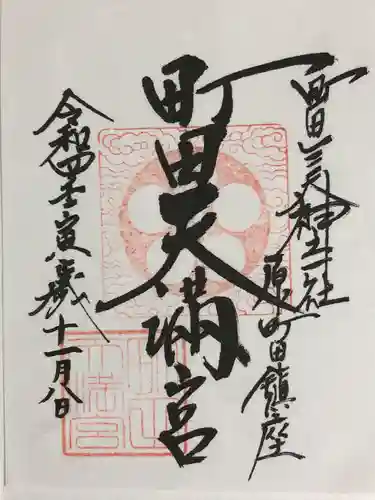 町田三天神社
原町田鎮座
町田天満宮
令和四壬寅歳
十一月八日